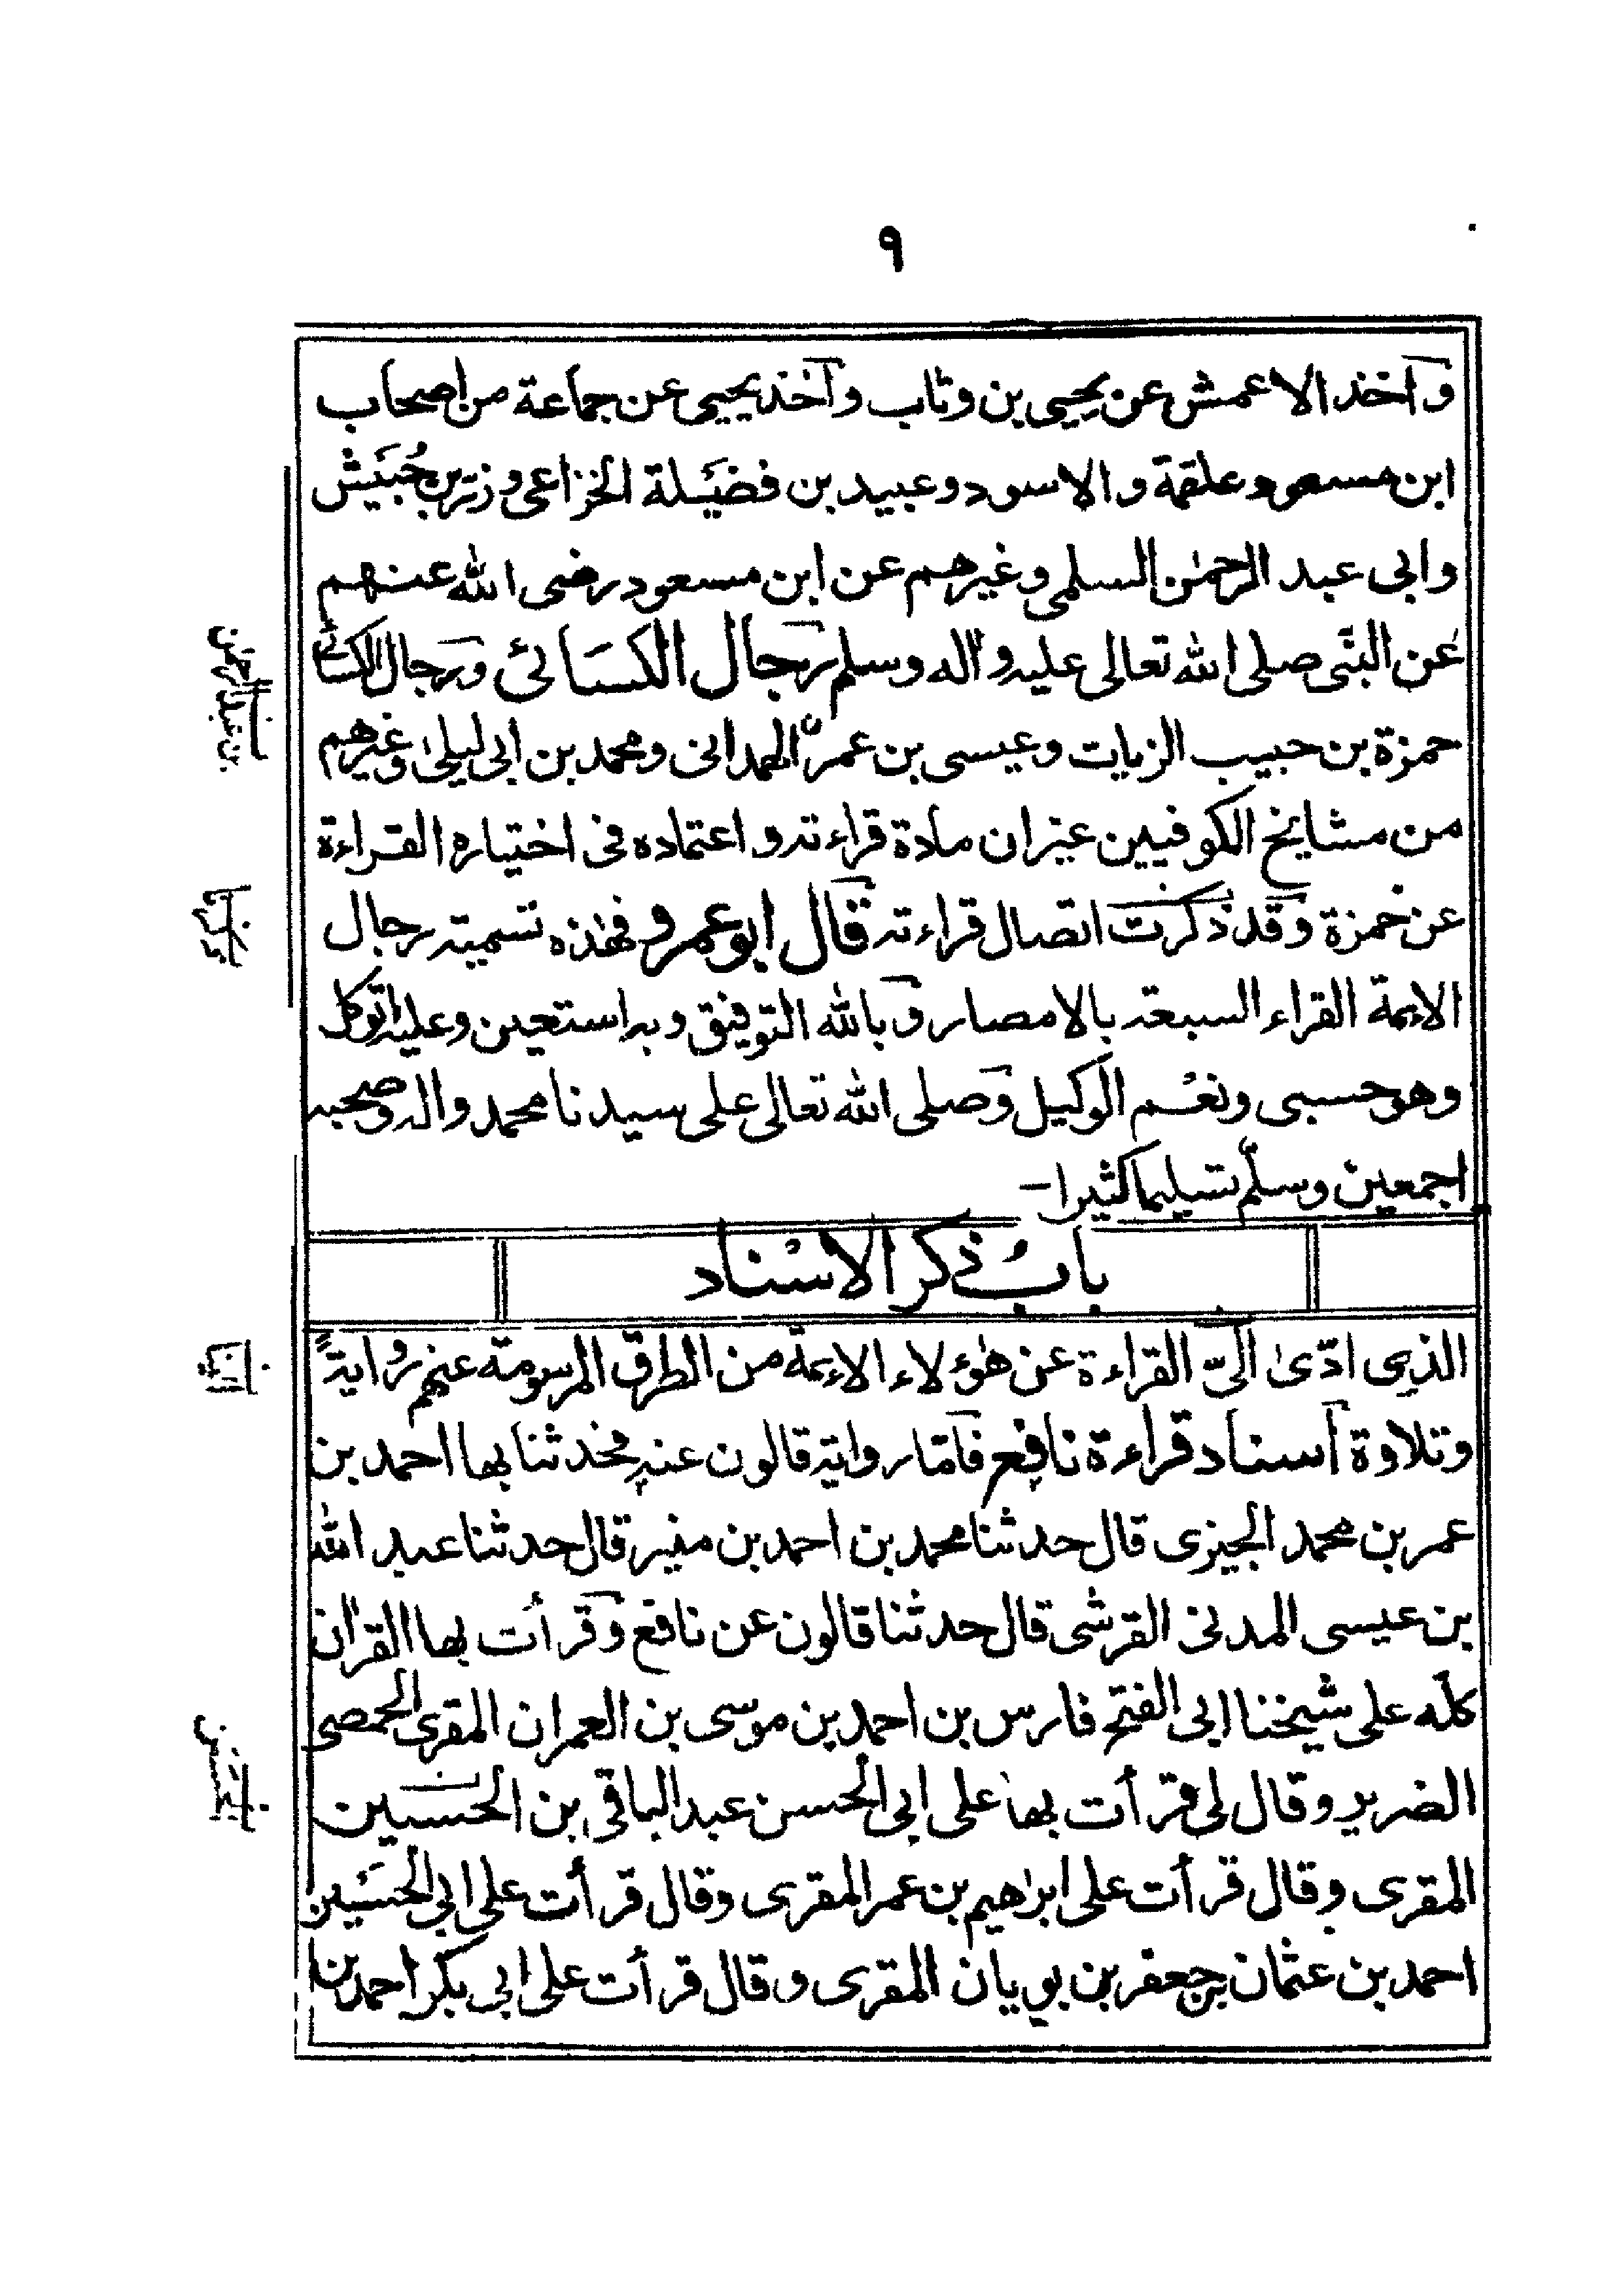 ٩
واخذ الاعمش عن يحيى بن وثاب واخذ يحيى عن جماعة من اصحاب
ابن مسعود علقمة و الاسود وعبيد بن فضَيْلة الخزاعى و زر بن حُبَيْش
وابى عبد الرحمٰن السلمى وغيرهم عن ابن مسعود رضى الله عنهم
عن النبّى صلى الله تعالى عليه و اٰله وسلم رجال الكسَائى ورجال الكسائى
حمزة بن حبيب الزيات وعيسى بن عمر الهمدانى ومحمد بن ابى ليلىٰ وغيرهم
من مشايخ الكوفيين غيران مادة قراءته و اعتماده فى اختياره القراءة
عن حمزة وقد ذكرت اتصال قراءته قال ابو عمرو فهذه تسمية رجال
الائمة القراء السبعة بالامصار وبالله التوفيق وبه استعين وعليه اتوكل
وهو حسبى ونعْم الوكيل وصلى الله تعالى على سيدنا محمد واله وصحبه
اجمعين وسلّم تسليما كثيرا –
بابُ ذكر الاسْناد
الذى ادّىٰ الىّ القراءة عن هٰؤلاء الائمة من الطرق المرسومة عنهم روايةً
وتلاوة اسناد قراءة نافع فامّا رواية قالون عنه فحدثنا بها احمد بن
عمر بن محمد الجيزى قال حدثنا محمد بن احمد بن منير قال حدثنا عبد الله
بن عيسى المدنى القرشى قال حدثنا قالون عن نافع وقرأت بها القراٰن
كلّه على شيخنا ابى الفتح فارس بن احمد بن موسى بن العمران المقرى الحمصى
الضرير وقال لى قرأت بها على ابى الحسن عبد الباقى بن الحسين
المقرى وقال قرأت على ابرٰهيم بن عمر المقرى وقال قرأت على ابى الحسَيْن
احمد بن عثمان بن جعفر بن بويان المقرى وقال قرأت على ابى بكر احمد بن